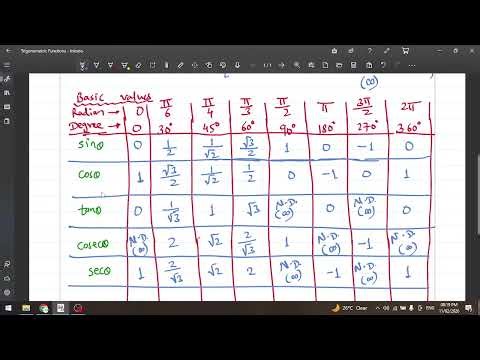 Trigonometric Functions - Inkodo
(∞)
Basic values
Radian → 0 π/6 π/4 π/3 π/2 π 3π/2 2π
Degree → 0 30° 45° 60° 90° 180° 270° 360°
sinθ 0 1/2 1/√2 √3/2 1 0 -1 0
cosθ 1 √3/2 1/√2 1/2 0 -1 0 1
tanθ 0 1/√3 1 √3 N.D. (∞) 0 N.D. (∞) 0
cosecθ N.D. (∞) 2 √2 2/√3 1 N.D. (∞) -1 N.D. (∞)
secθ 1 2/√3 √2 2 N.D. (∞) -1 N.D. (∞) 1
26°C Clear
08:19 PM
11/02/2026